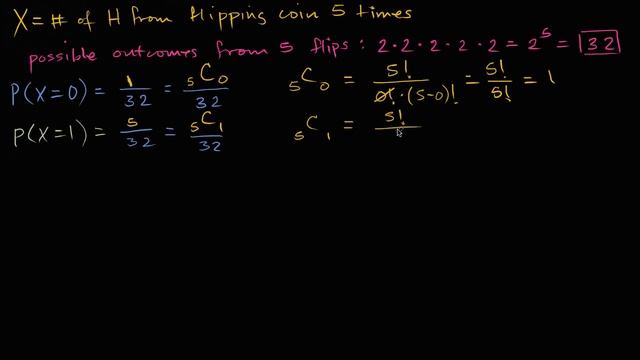 X = # of H from flipping coin 5 times
possible outcomes from 5 flips: 2 · 2 · 2 · 2 · 2 = 2⁵ = 32
P(X=0) = 1/32 = ₅C₀/32
₅C₀ = 5!/(0!·(5-0)!) = 5!/5! = 1
P(X=1) = 5/32 = ₅C₁/32
₅C₁ = 5!/